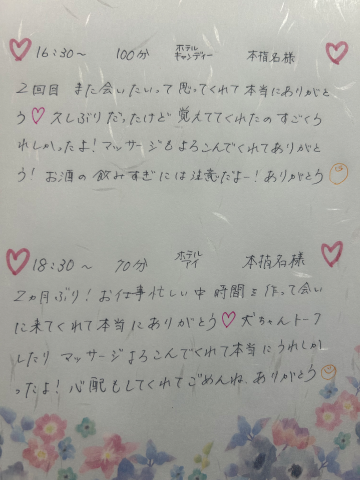 16:30〜 100分 ホテルキャンディー 本指名様
2回目 また会いたいって思ってくれて本当にありがと
う♡久しぶりだったけど覚えててくれたのすごくう
れしかったよ!マッサージもよろこんでくれてありがと
う!お酒の飲みすぎには注意だよー!ありがとう☺
18:30〜 70分 ホテルアイ 本指名様
2ヵ月ぶり!お仕事忙しい中時間を作って会い
に来てくれて本当にありがとう♡犬ちゃんトーク
したりマッサージよろこんでくれて本当にうれしか
ったよ!心配もしてくれてごめんね、ありがとう☺